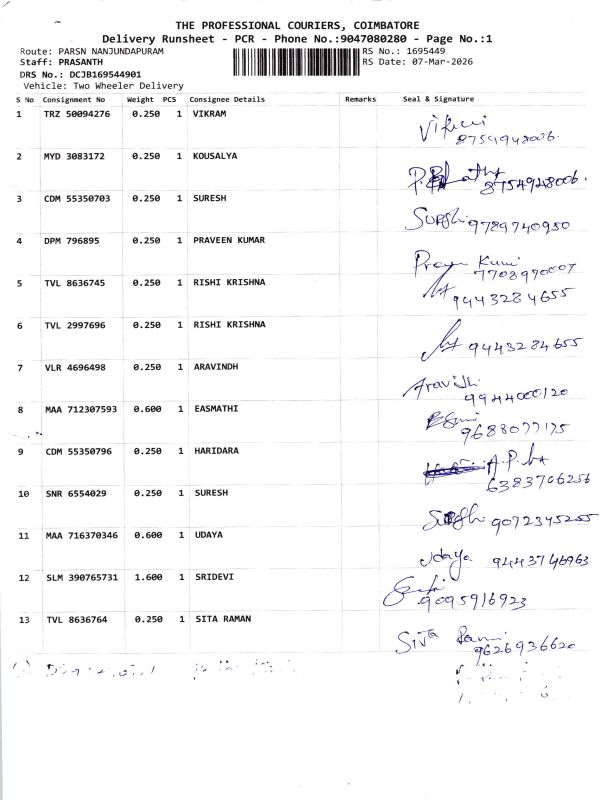 THE PROFESSIONAL COURIERS, COIMBATORE
Delivery Runsheet - PCR - Phone No.:9047080280 - Page No.:1
Route: PARSN NANJUNDAPURAM RS No.: 1695449
Staff: PRASANTH RS Date: 07-Mar-2026
DRS No.: DCJB169544901
Vehicle: Two Wheeler Delivery
S No Consignment No Weight PCS Consignee Details Remarks Seal & Signature
1 TRZ 50094276 0.250 1 VIKRAM
8754948006.
2 MYD 3083172 0.250 1 KOUSALYA
8754948006.
3 CDM 55350703 0.250 1 SURESH
9789740950
4 DPM 796895 0.250 1 PRAVEEN KUMAR
7708970007
5 TVL 8636745 0.250 1 RISHI KRISHNA
9443284655
6 TVL 2997696 0.250 1 RISHI KRISHNA
9443284655
7 VLR 4696498 0.250 1 ARAVINDH
9944000120
8 MAA 712307593 0.600 1 EASMATHI
9688077175
9 CDM 55350796 0.250 1 HARIDARA
6383706256
10 SNR 6554029 0.250 1 SURESH
9072345255
11 MAA 716370346 0.600 1 UDAYA
Udaya 9443746963
12 SLM 390765731 1.600 1 SRIDEVI
9095916923
13 TVL 8636764 0.250 1 SITA RAMAN
9626936620